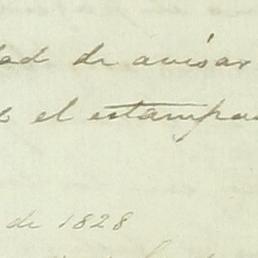 dad de avisar
el estampa
de 1828